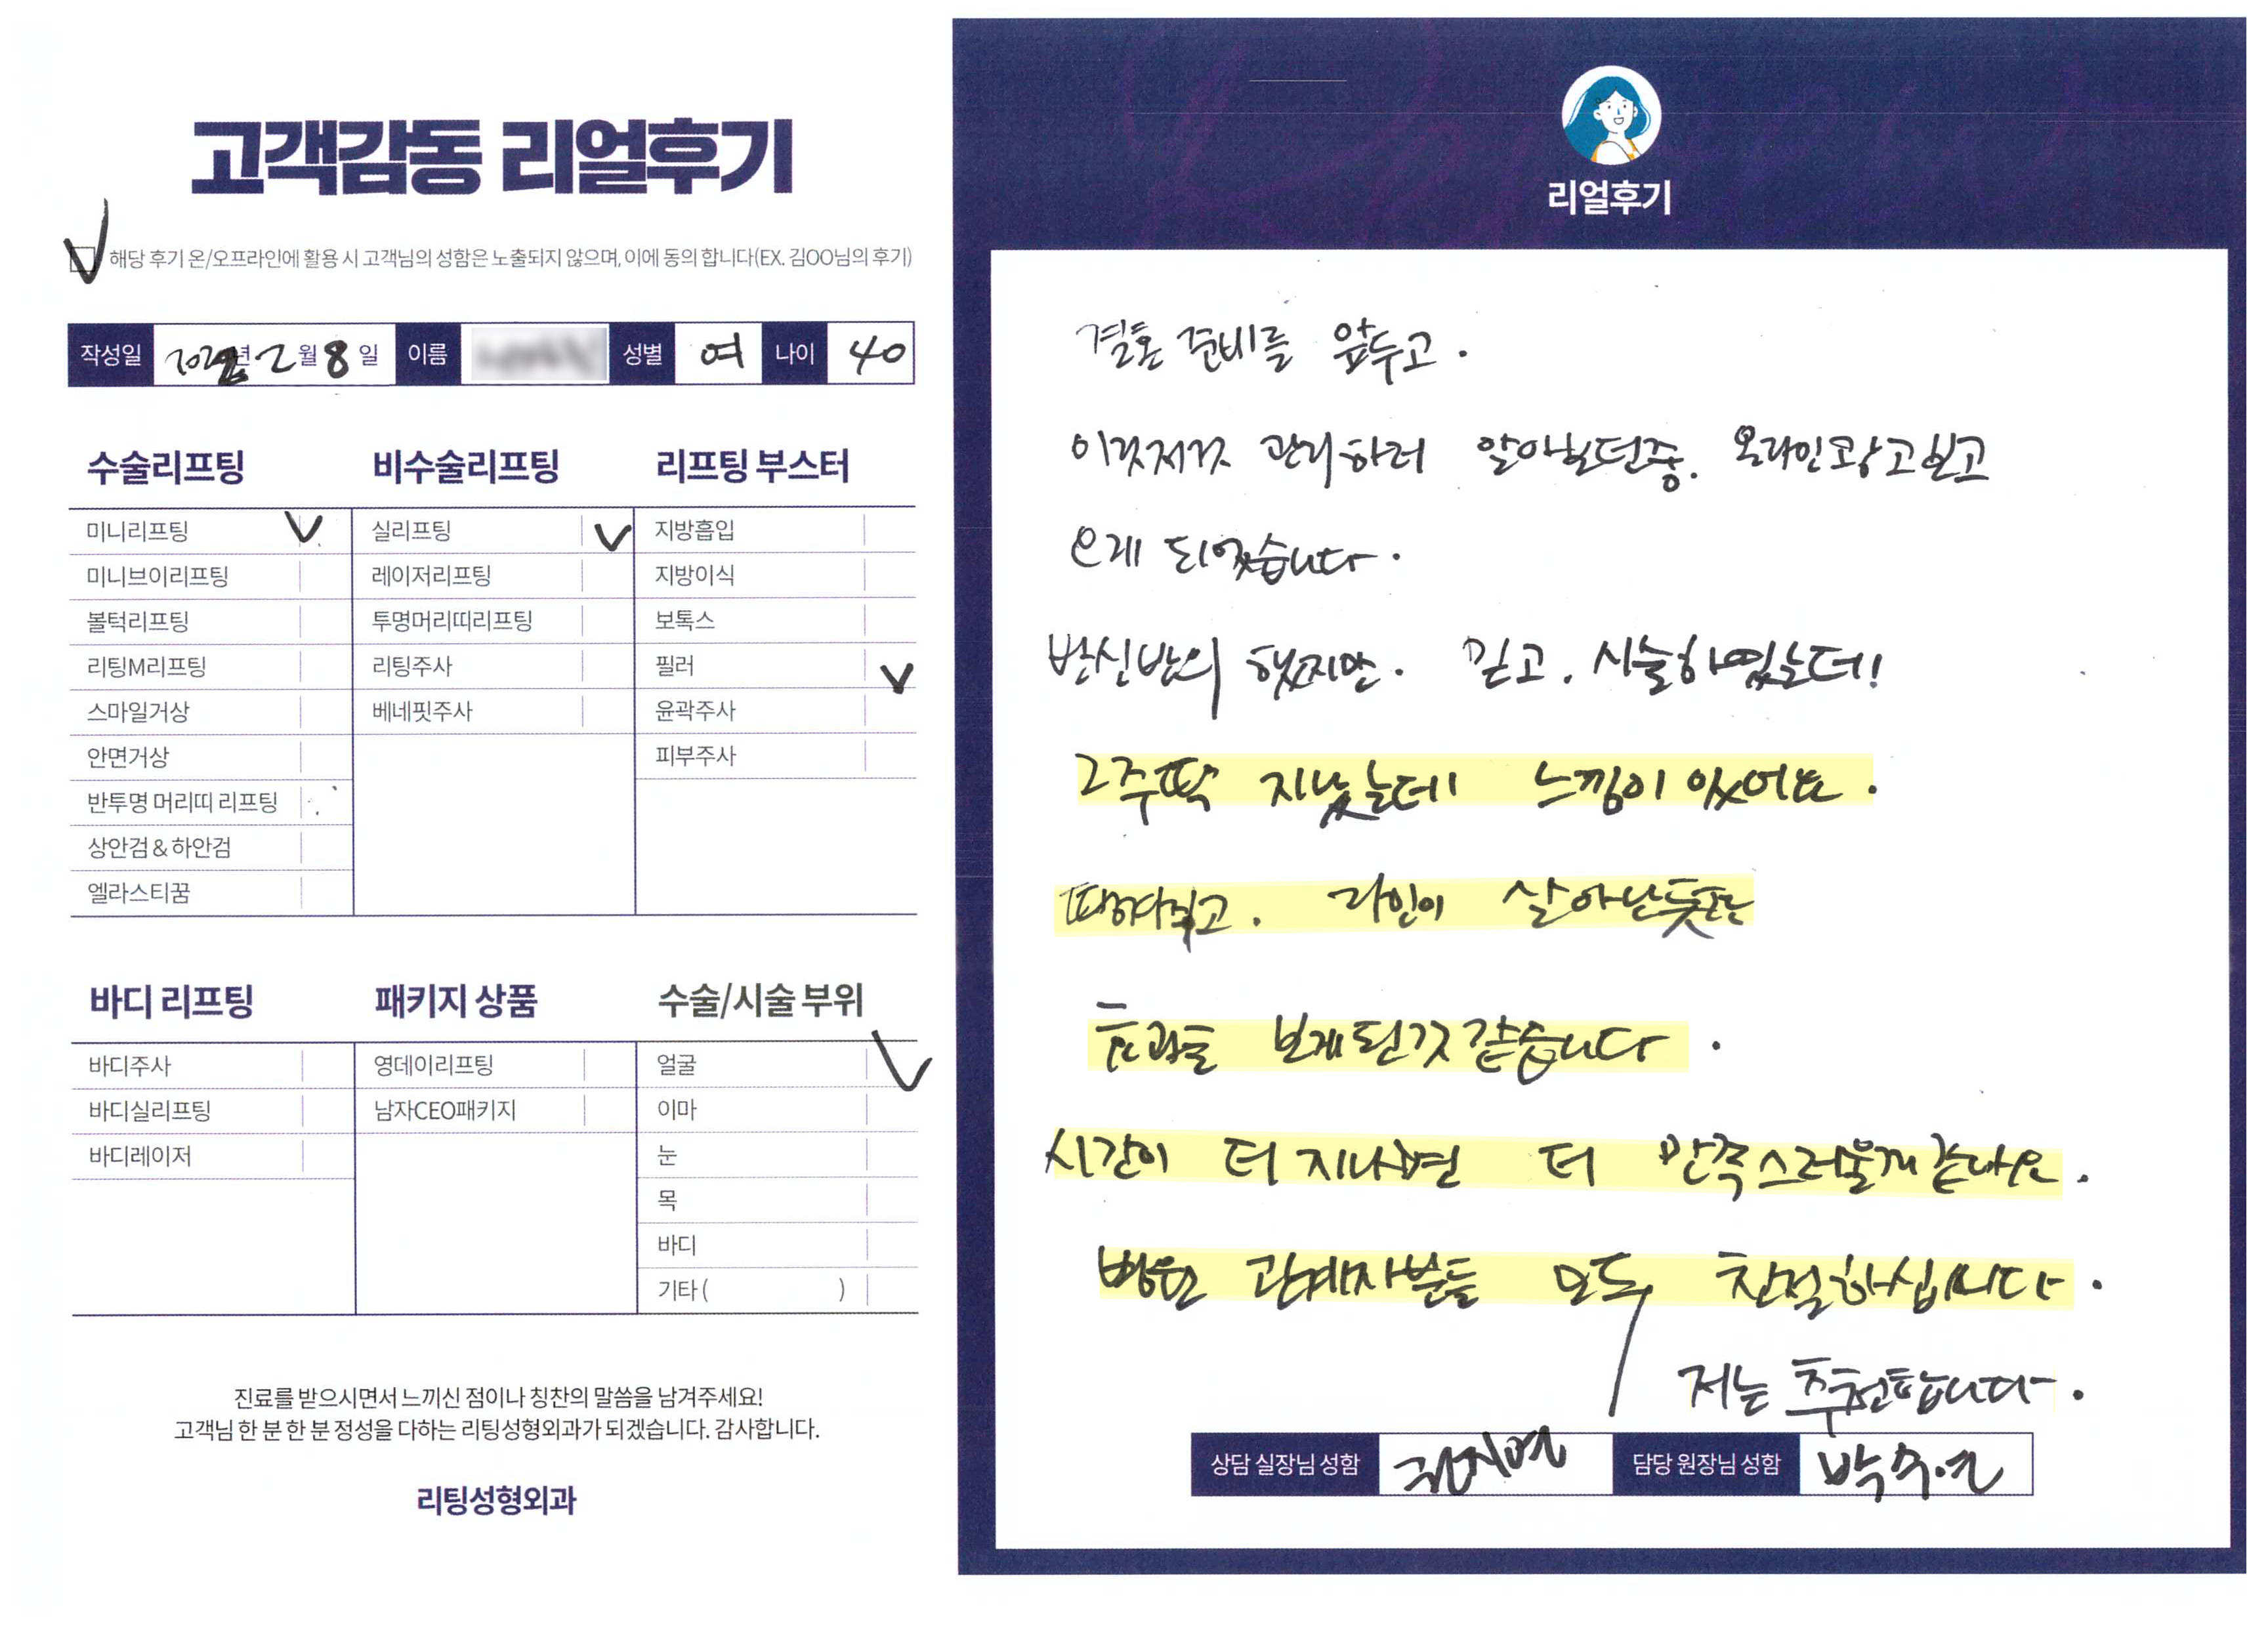 고객감동 리얼후기
해당 후기 온/오프라인에 활용 시 고객님의 성함은 노출되지 않으며, 이에 동의 합니다(EX. 김OO님의 후기)
작성일 년 2월 8일 이름 성별 여 나이 40
수술리프팅
미니리프팅 V
미니브이리프팅
볼턱리프팅
리팅M리프팅
스마일거상
안면거상
반투명 머리띠 리프팅
상안검 & 하안검
엘라스티꿈
비수술리프팅
실리프팅 V
레이저리프팅
투명머리띠리프팅
리팅주사
베네핏주사
리프팅 부스터
지방흡입
지방이식
보톡스
필러 V
윤곽주사
피부주사
바디 리프팅
바디주사
바디실리프팅
바디레이저
패키지 상품
영데이리프팅
남자CEO패키지
수술/시술 부위
얼굴 V
이마
눈
목
바디
기타 ( )
진료를 받으시면서 느끼신 점이나 칭찬의 말씀을 남겨주세요!
고객님 한 분 한 분 정성을 다하는 리팅성형외과가 되겠습니다. 감사합니다.
리팅성형외과
리얼후기
결혼 준비를 앞두고.
이것저것 관리하러 알아보던중. 온라인광고보고
오게 되었습니다.
반신반의 했지만. 믿고. 시술하였는데!
2주딱 지났는데 느낌이 있어요.
땡겨지고. 라인이 살아난듯한
효과를 보게된것 같습니다.
시간이 더 지나면 더 만족스러울게 같아요.
병원 관계자분들 모두 친절하십니다.
저는 추천합니다.
상담 실장님 성함 담당 원장님 성함 박수